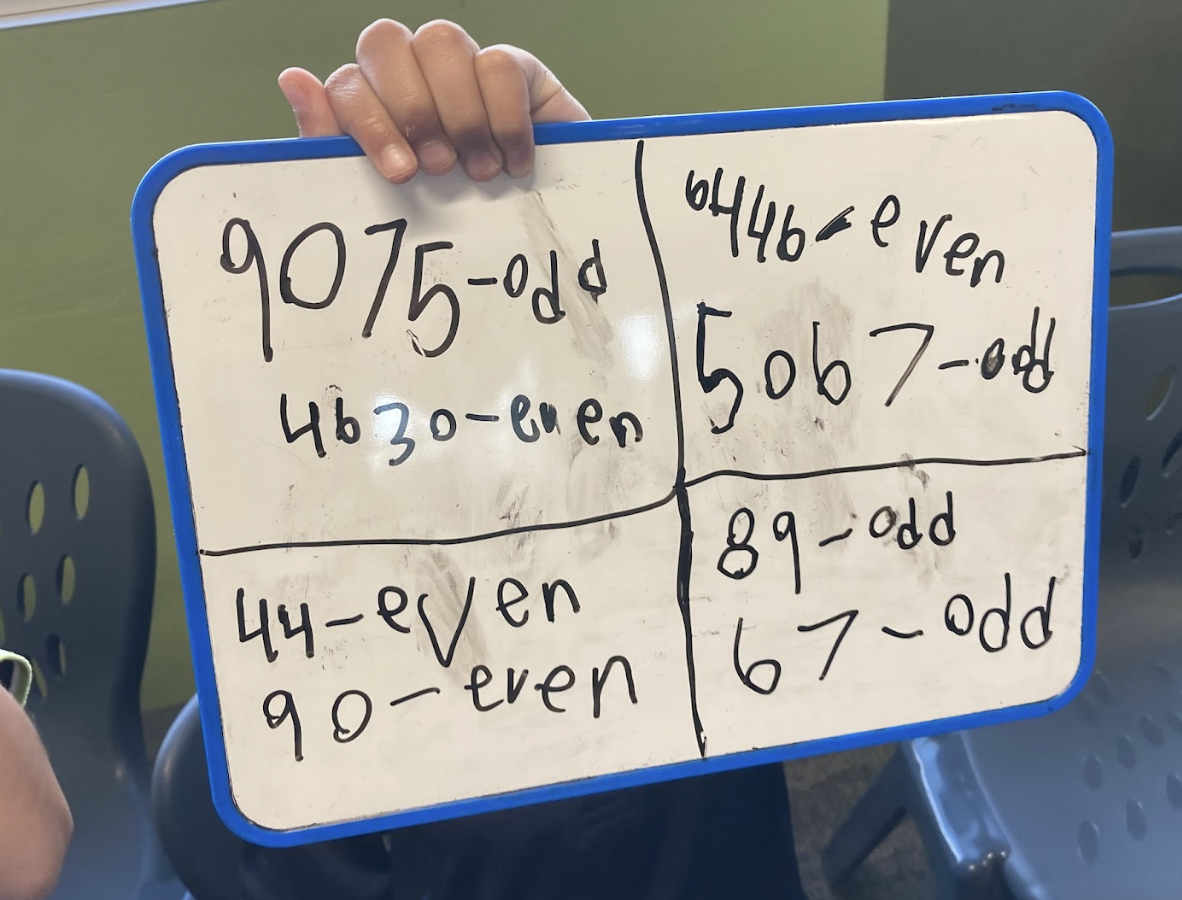 9075-odd
4630-even
6446-even
5067-odd
44-even
90-even
89-odd
67-odd